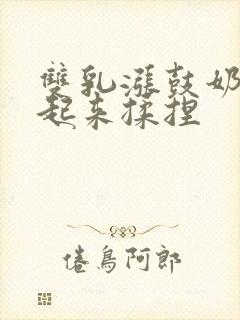 雙乳漲鼓奶
起来揉捏
倦鳥阿郎